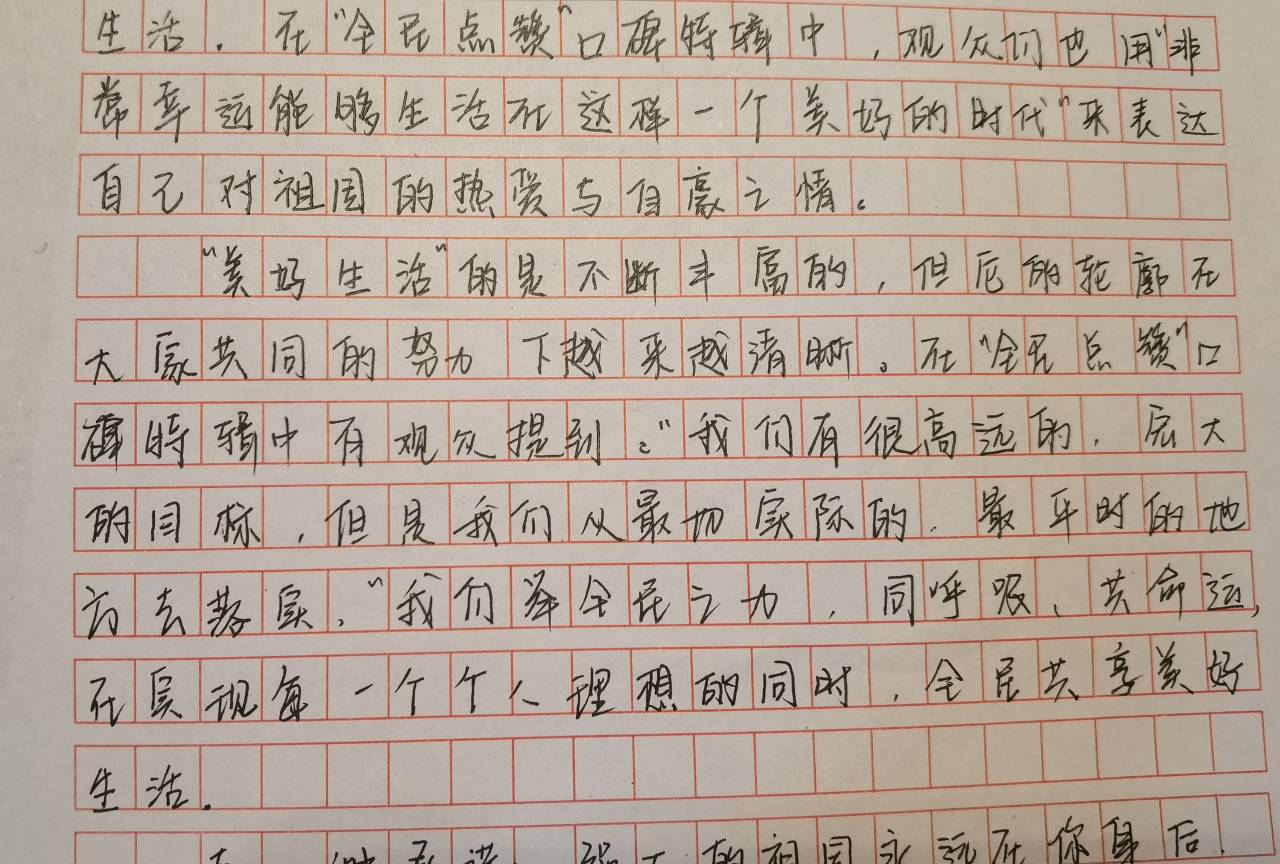 生活。在“全民点赞”口碑特辑中，观众们也用“非
常幸运能够生活在这样一个美好的时代”来表达
自己对祖国的热爱与自豪之情。
“美好生活”的是不断丰富的，但它的轮廓在
大家共同的努力下越来越清晰。在“全民点赞”口
碑特辑中有观众提到：“我们有很高远的、宏大
的目标，但是我们从最切实际的、最平时的地
方去落实。”我们举全民之力，同呼吸、共命运，
在实现每一个个人理想的同时，全民共享美好
生活。
强大的祖国永远在你身后